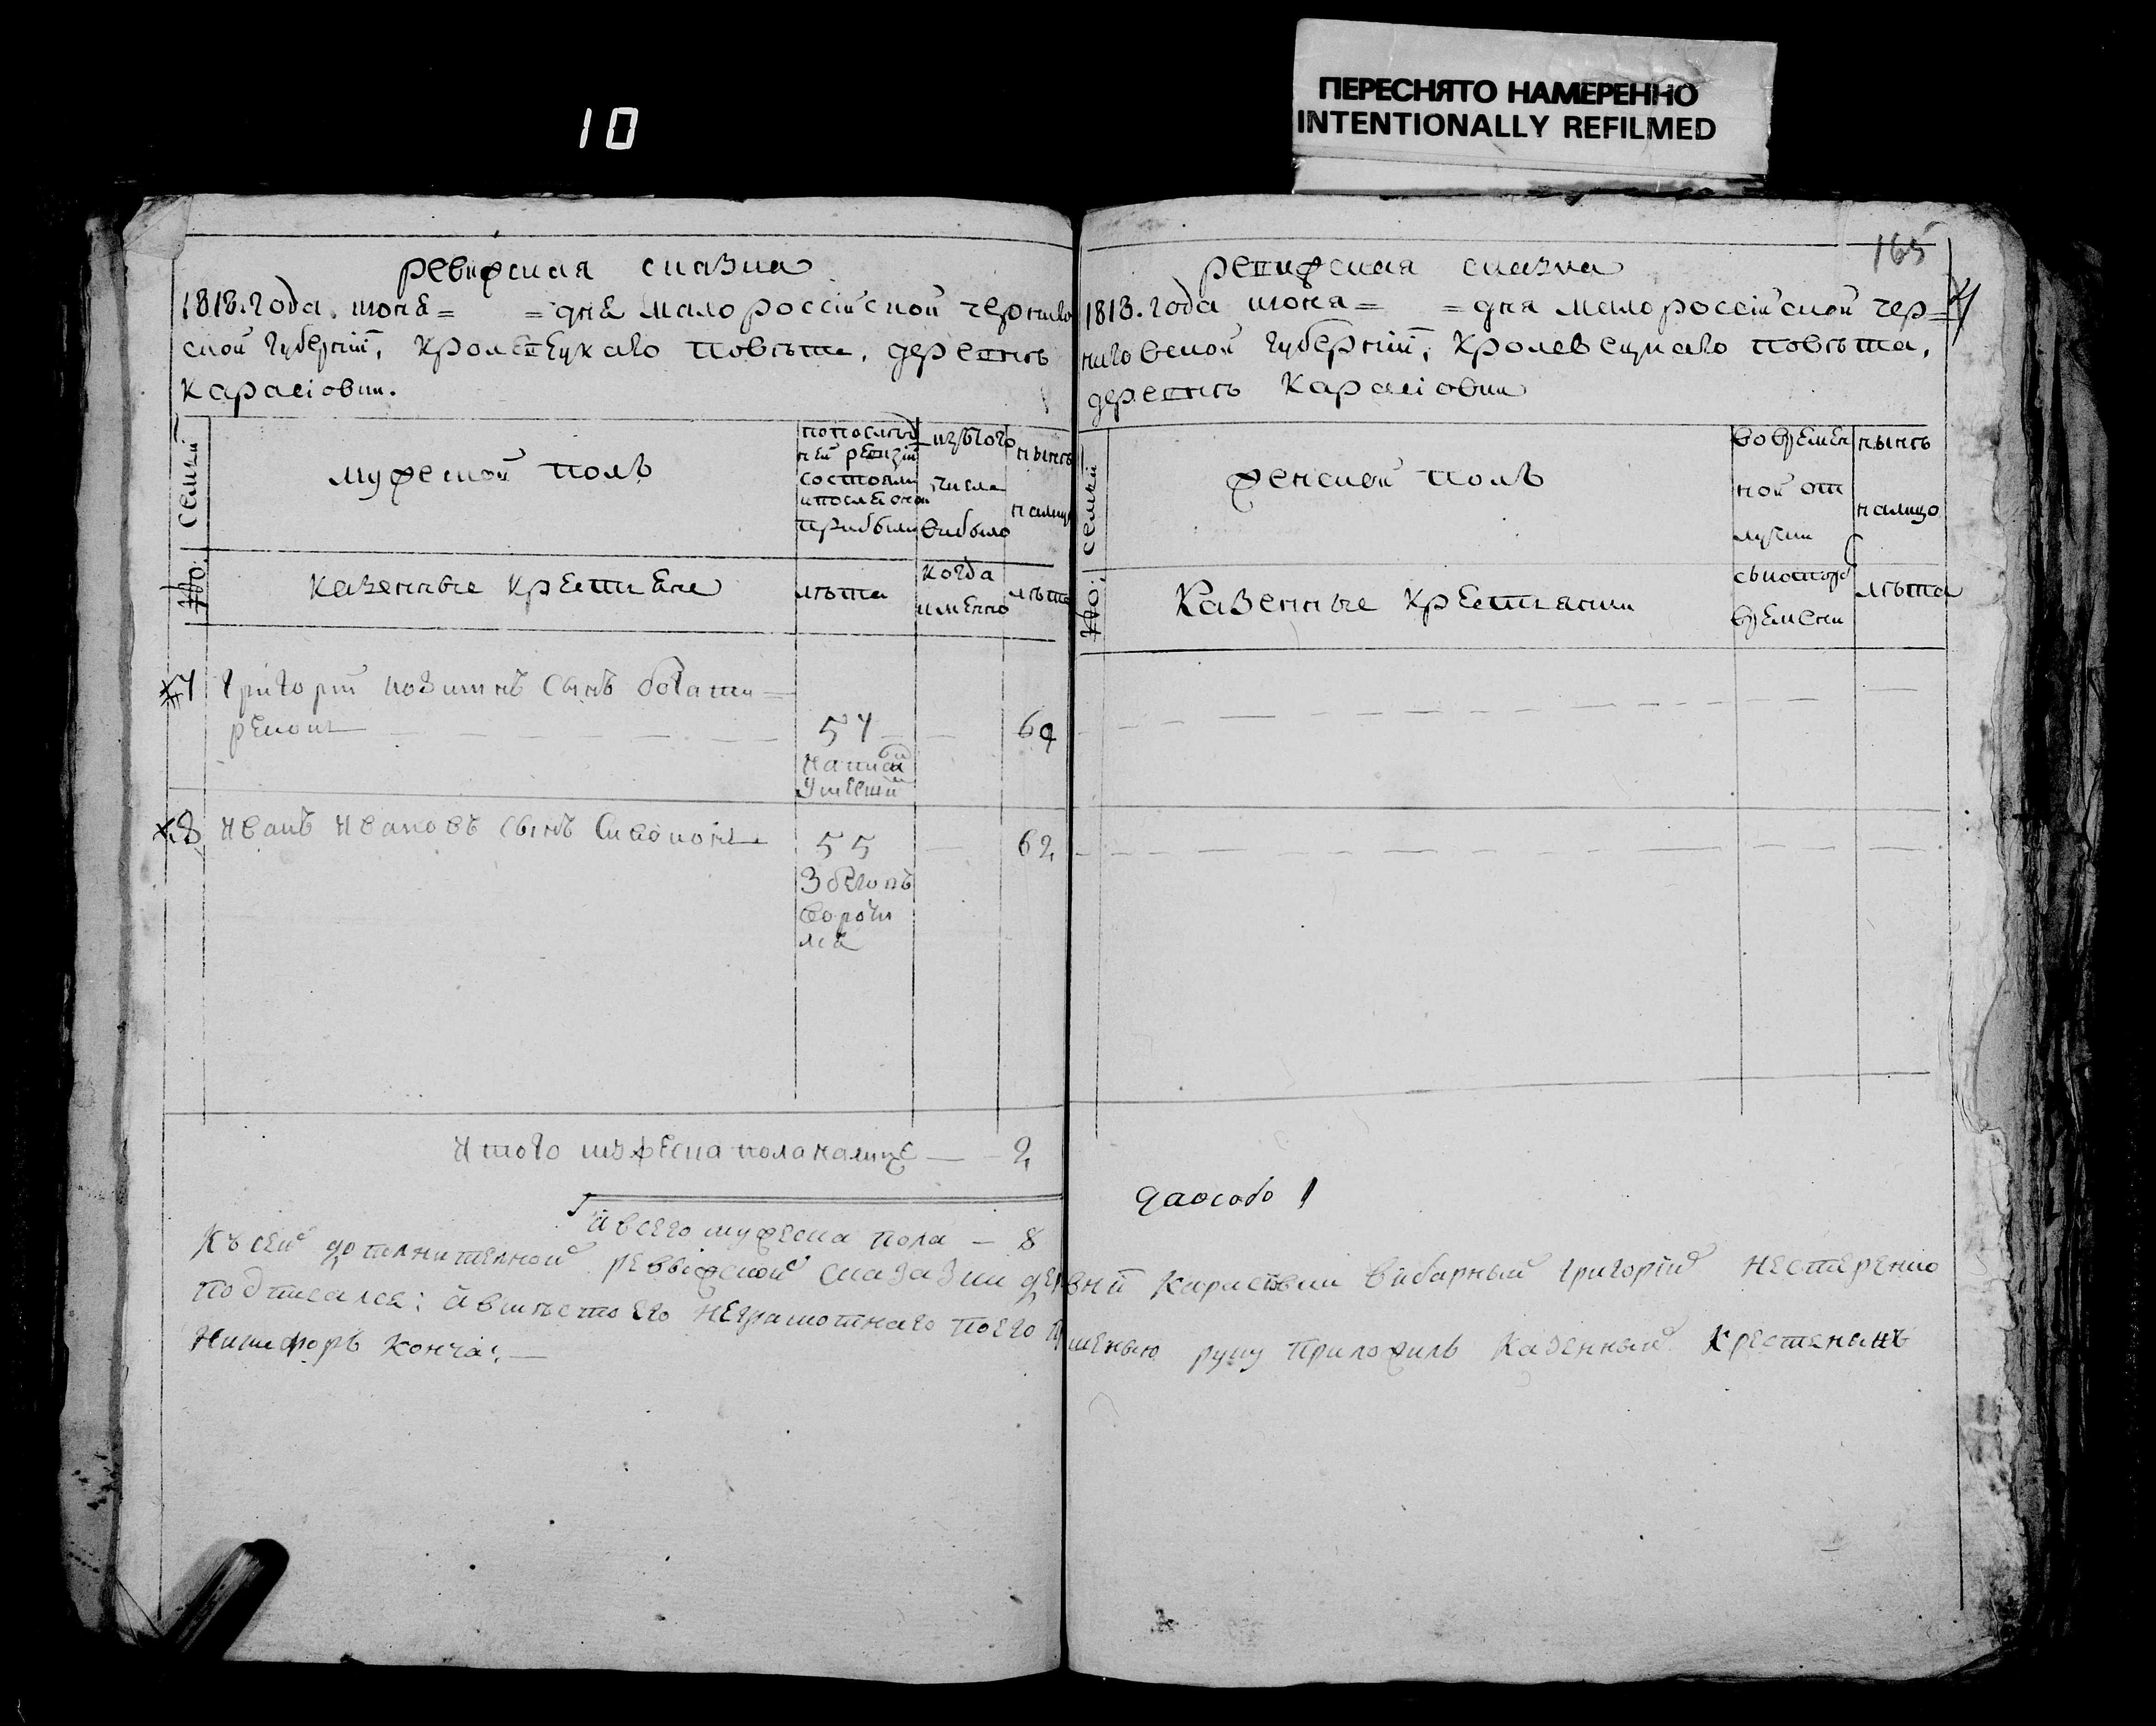 10
ПЕРЕСНЯТО НАМЕРЕННО
INTENTIONALLY REFILMED
165
ревижская сказка
1818. года июня = = дня малороссійской чернигов
ской губерніи, кролевецкаго повѣта, деревнѣ
Карасіовки.
№: семьи
мужеской полъ
попослѣд
ней ревизіи
состояли
ипослѣ оной
прибыли
изътого
числа
выбыло
нынѣ
налицо
казенные крестяне
лѣта
когда
именно
лѣта
7 Григорій козминъ сынъ богати=
ренокъ
57
64
написан
8 Иванъ Ивановъ сынъ
55
62
Збѣговъ
вороти
лся
Итого мужеска пола налице — 2
А всего мужеска пола — 8
ревижская сказка
1818. года июня = = дня малороссійской чер=
ниговской губерніи, кролевецкаго повѣта,
деревнѣ Карасіовки
№: семьи
женской полъ
вовремен
ной от
лучки
нынѣ
налицо
Казенные крестянки
съкоторого
времени
лѣта
даособо 1
Къ сей дополнителной ревыжской сказзки деревнѣ Карасіовки выбарный григорій нестеренко
подписался: а вмѣсто его неграмотнаго поего прошенью руку приложилъ казенный крестенинъ
Никифоръ Конча: —